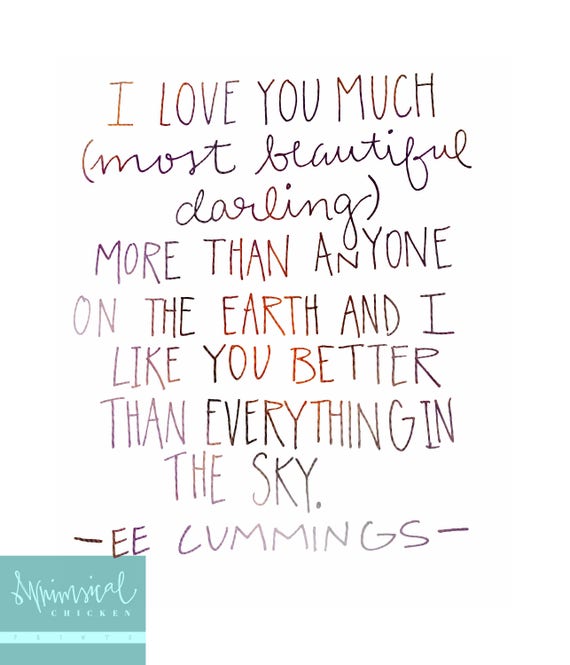 I LOVE YOU MUCH
(most beautiful
darling)
MORE THAN ANYONE
ON THE EARTH AND I
LIKE YOU BETTER
THAN EVERYTHING IN
THE SKY.
—EE CUMMINGS—
Whimsical
CHICKEN
PRINTS